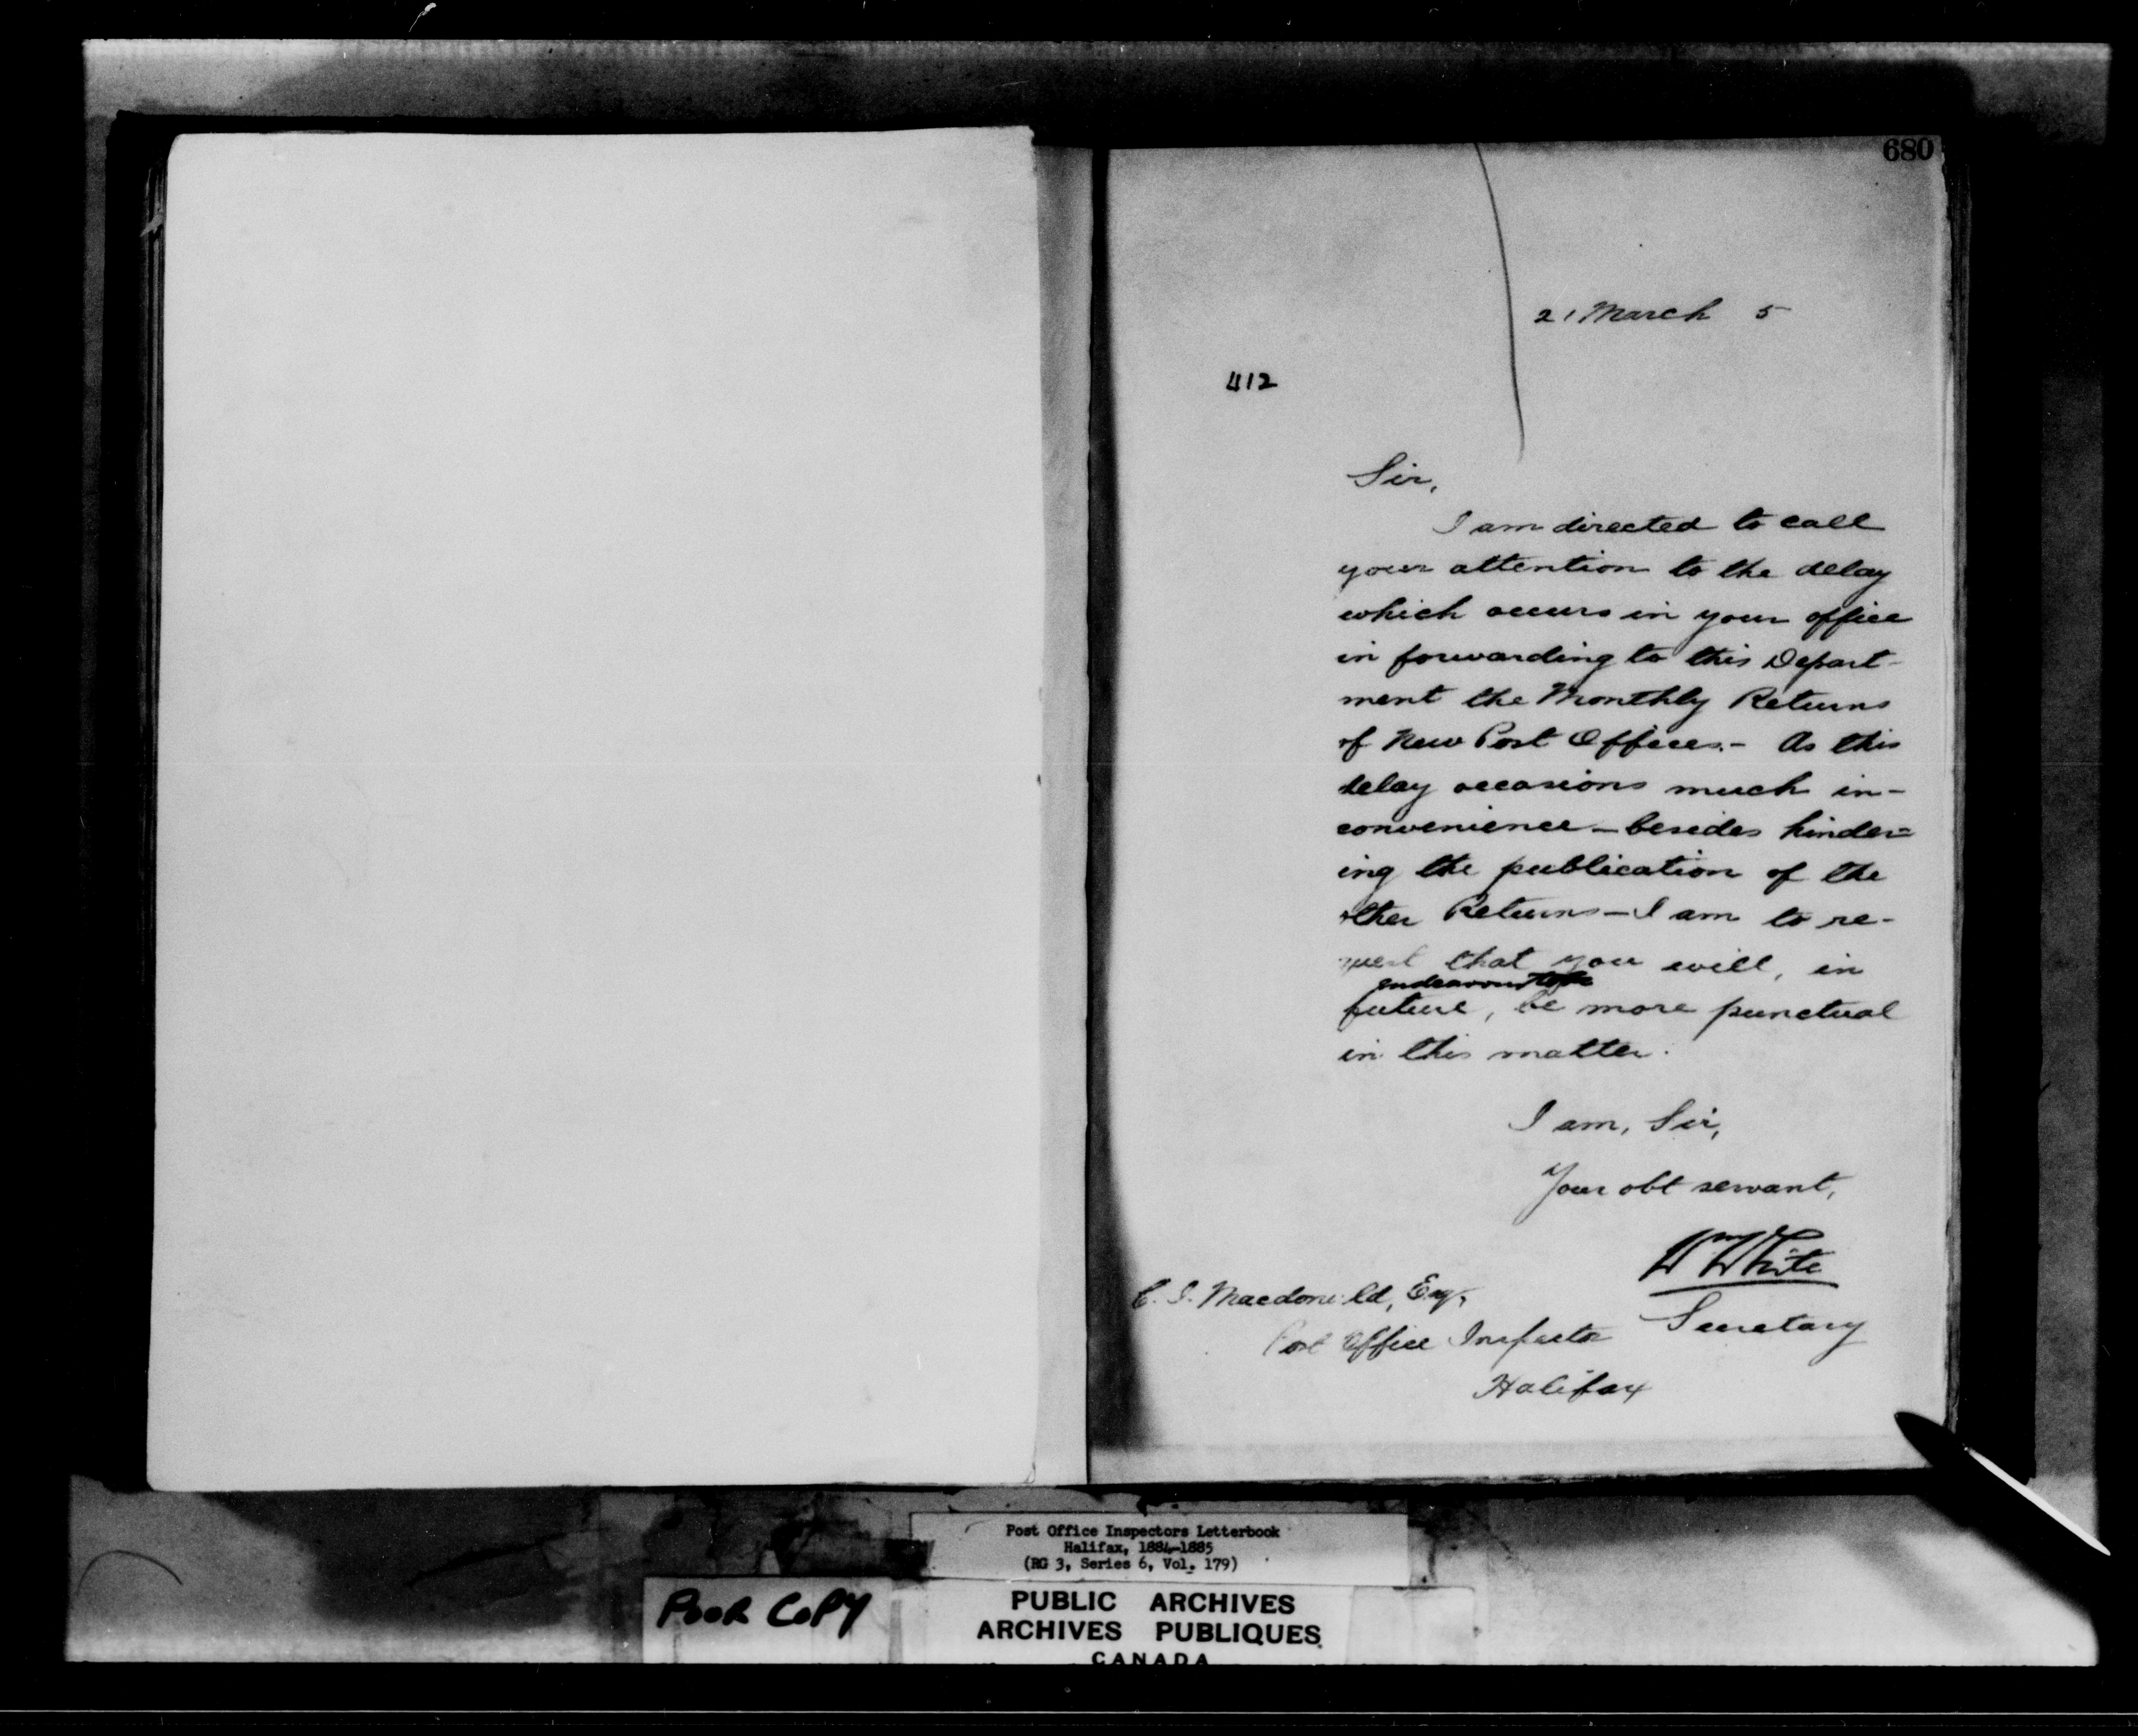 680
21 March 5
412
Sir,
I am directed to call
your attention to the delay
which occurs in your office
in forwarding to this Depart-
ment the Monthly Returns
of New Post Offices.- As this
delay occasions much in-
convenience - besides hinder=
ing the publication of the
other Returns - I am to re-
quest that you will, in
endeavour to
future, be more punctual
in this matter.
I am, Sir,
Your obt servant,
Wm White
Secretary
C. J. Macdonald, Esq,
Post Office Inspector
Halifax
Post Office Inspectors Letterbook
Halifax, 1884-1885
(RG 3, Series 6, Vol. 179)
POOR COPY
PUBLIC ARCHIVES
ARCHIVES PUBLIQUES
CANADA